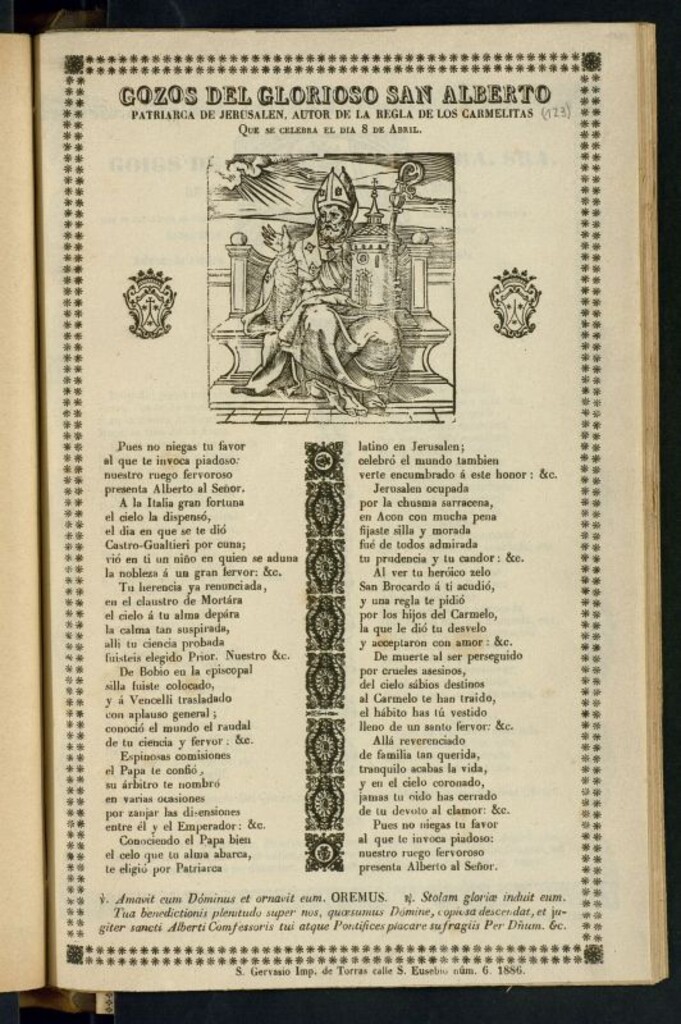 GOZOS DEL GLORIOSO SAN ALBERTO
PATRIARCA DE JERUSALEN, AUTOR DE LA REGLA DE LOS CARMELITAS (123)
QUE SE CELEBRA EL DIA 8 DE ABRIL.
Pues no niegas tu favor
al que te invoca piadoso:
nuestro ruego fervoroso
presenta Alberto al Señor.
A la Italia gran fortuna
el cielo la dispensó,
el dia en que se te dió
Castro-Gualtieri por cuna;
vió en ti un niño en quien se aduna
la nobleza á un gran fervor: &c.
Tu herencia ya renunciada,
en el claustro de Mortára
el cielo á tu alma depára
la calma tan suspirada,
alli tu ciencia probada
fuisteis elegido Prior. Nuestro &c.
De Bobio en la episcopal
silla fuiste colocado,
y á Vencelli trasladado
con aplauso general;
conoció el mundo el raudal
de tu ciencia y fervor: &c.
Espinosas comisiones
el Papa te confió,
su árbitro te nombró
en varias ocasiones
por zanjar las disensiones
entre él y el Emperador: &c.
Conociendo el Papa bien
el celo que tu alma abarca,
te eligió por Patriarca
latino en Jerusalen;
celebró el mundo tambien
verte encumbrado á este honor: &c.
Jerusalen ocupada
por la chusma sarracena,
en Acon con mucha pena
fijaste silla y morada
fué de todos admirada
tu prudencia y tu candor: &c.
Al ver tu heróico zelo
San Brocardo á ti acudió,
y una regla te pidió
por los hijos del Carmelo,
la que le dió tu desvelo
y acceptaron con amor: &c.
De muerte al ser perseguido
por crueles asesinos,
del cielo sábios destinos
al Carmelo te han traido,
el hábito has tú vestido
lleno de un santo fervor: &c.
Allá reverenciado
de familia tan querida,
tranquilo acabas la vida,
y en el cielo coronado,
jamas tu oido has cerrado
de tu devoto al clamor: &c.
Pues no niegas tu favor
al que te invoca piadoso:
nuestro ruego fervoroso
presenta Alberto al Señor.
℣. Amavit eum Dóminus et ornavit eum. OREMUS. ℟. Stolam gloriæ induit eum.
Tua benedictionis plenitudo super nos, quæsumus Dómine, copiosa descendat, et ju-
giter sancti Alberti Comfessoris tui atque Pontifices placare sufragiis Per Dñum. &c.
S. Gervasio Imp. de Torras calle S. Eusebio núm. 6. 1886.